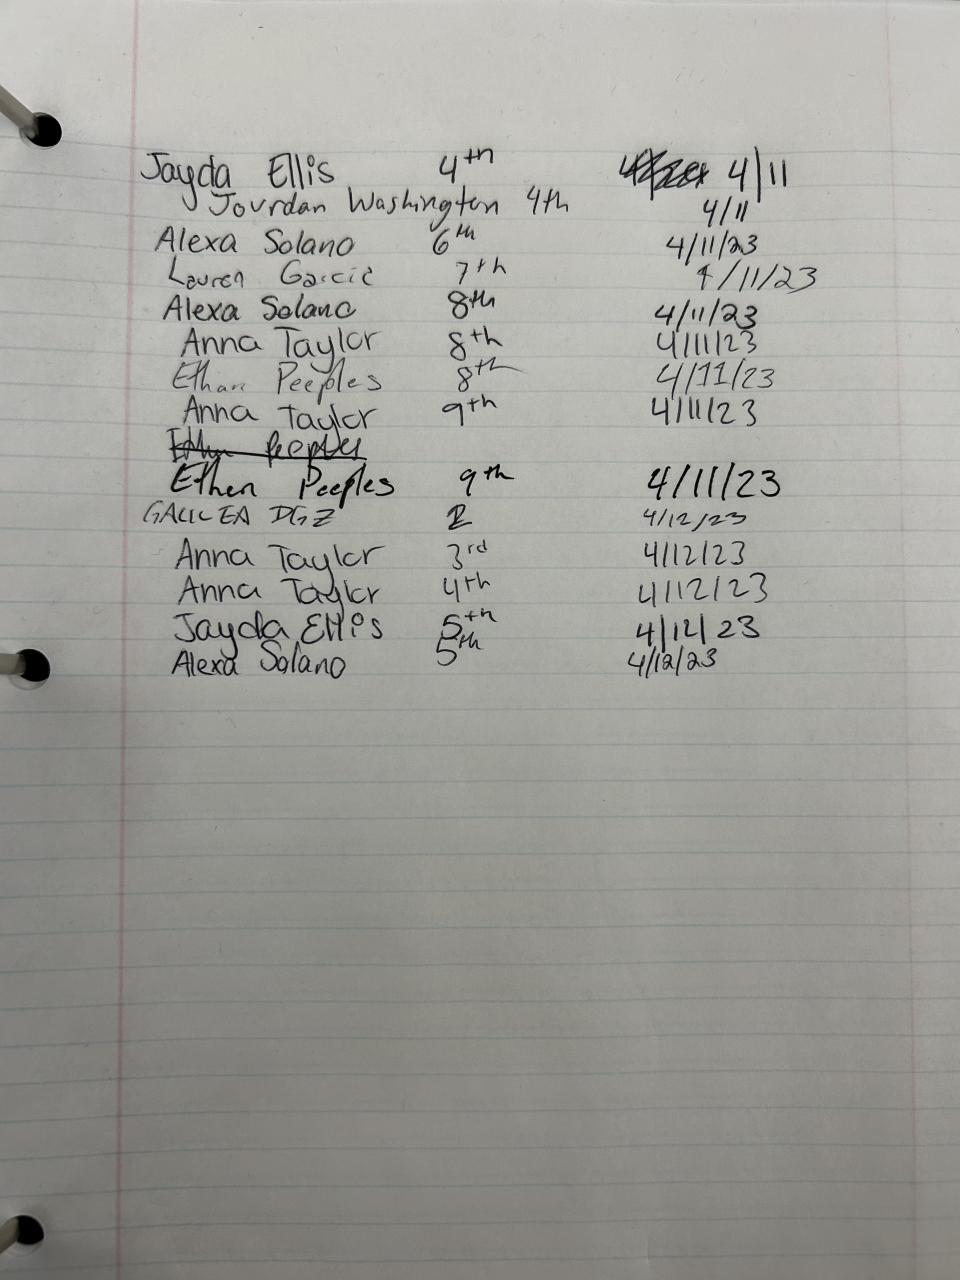 Jayda Ellis 4th 4/11
Jourdan Washington 4th 4/11
Alexa Solano 6th 4/11/23
Lauren Garcia 7th 4/11/23
Alexa Solano 8th 4/11/23
Anna Taylor 8th 4/11/23
Ethan Peeples 8th 4/11/23
Anna Taylor 9th 4/11/23
Peeples
Ethen Peeples 9th 4/11/23
GALILEA DGZ 4/12/23
Anna Taylor 3rd 4/12/23
Anna Taylor 4th 4/12/23
Jayda Ellis 5th 4/12/23
Alexa Solano 5th 4/12/23